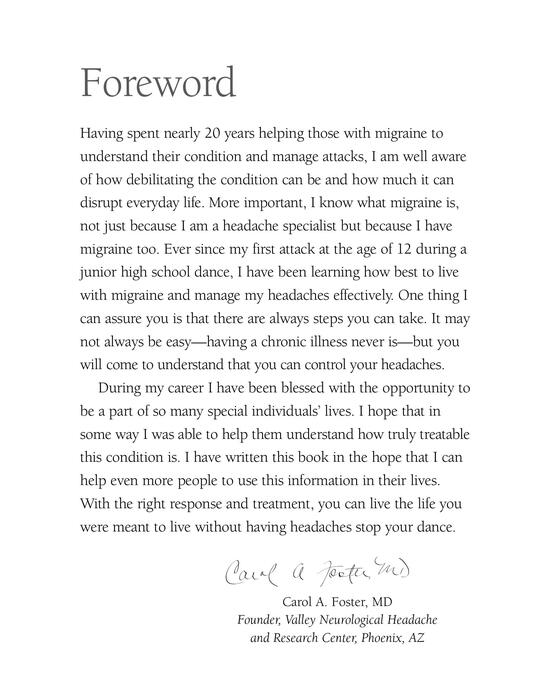 Foreword
Having spent nearly 20 years helping those with migraine to
understand their condition and manage attacks, I am well aware
of how debilitating the condition can be and how much it can
disrupt everyday life. More important, I know what migraine is,
not just because I am a headache specialist but because I have
migraine too. Ever since my first attack at the age of 12 during a
junior high school dance, I have been learning how best to live
with migraine and manage my headaches effectively. One thing I
can assure you is that there are always steps you can take. It may
not always be easy—having a chronic illness never is—but you
will come to understand that you can control your headaches.
During my career I have been blessed with the opportunity to
be a part of so many special individuals' lives. I hope that in
some way I was able to help them understand how truly treatable
this condition is. I have written this book in the hope that I can
help even more people to use this information in their lives.
With the right response and treatment, you can live the life you
were meant to live without having headaches stop your dance.
Carol A Foster, MD
Carol A. Foster, MD
Founder, Valley Neurological Headache
and Research Center, Phoenix, AZ